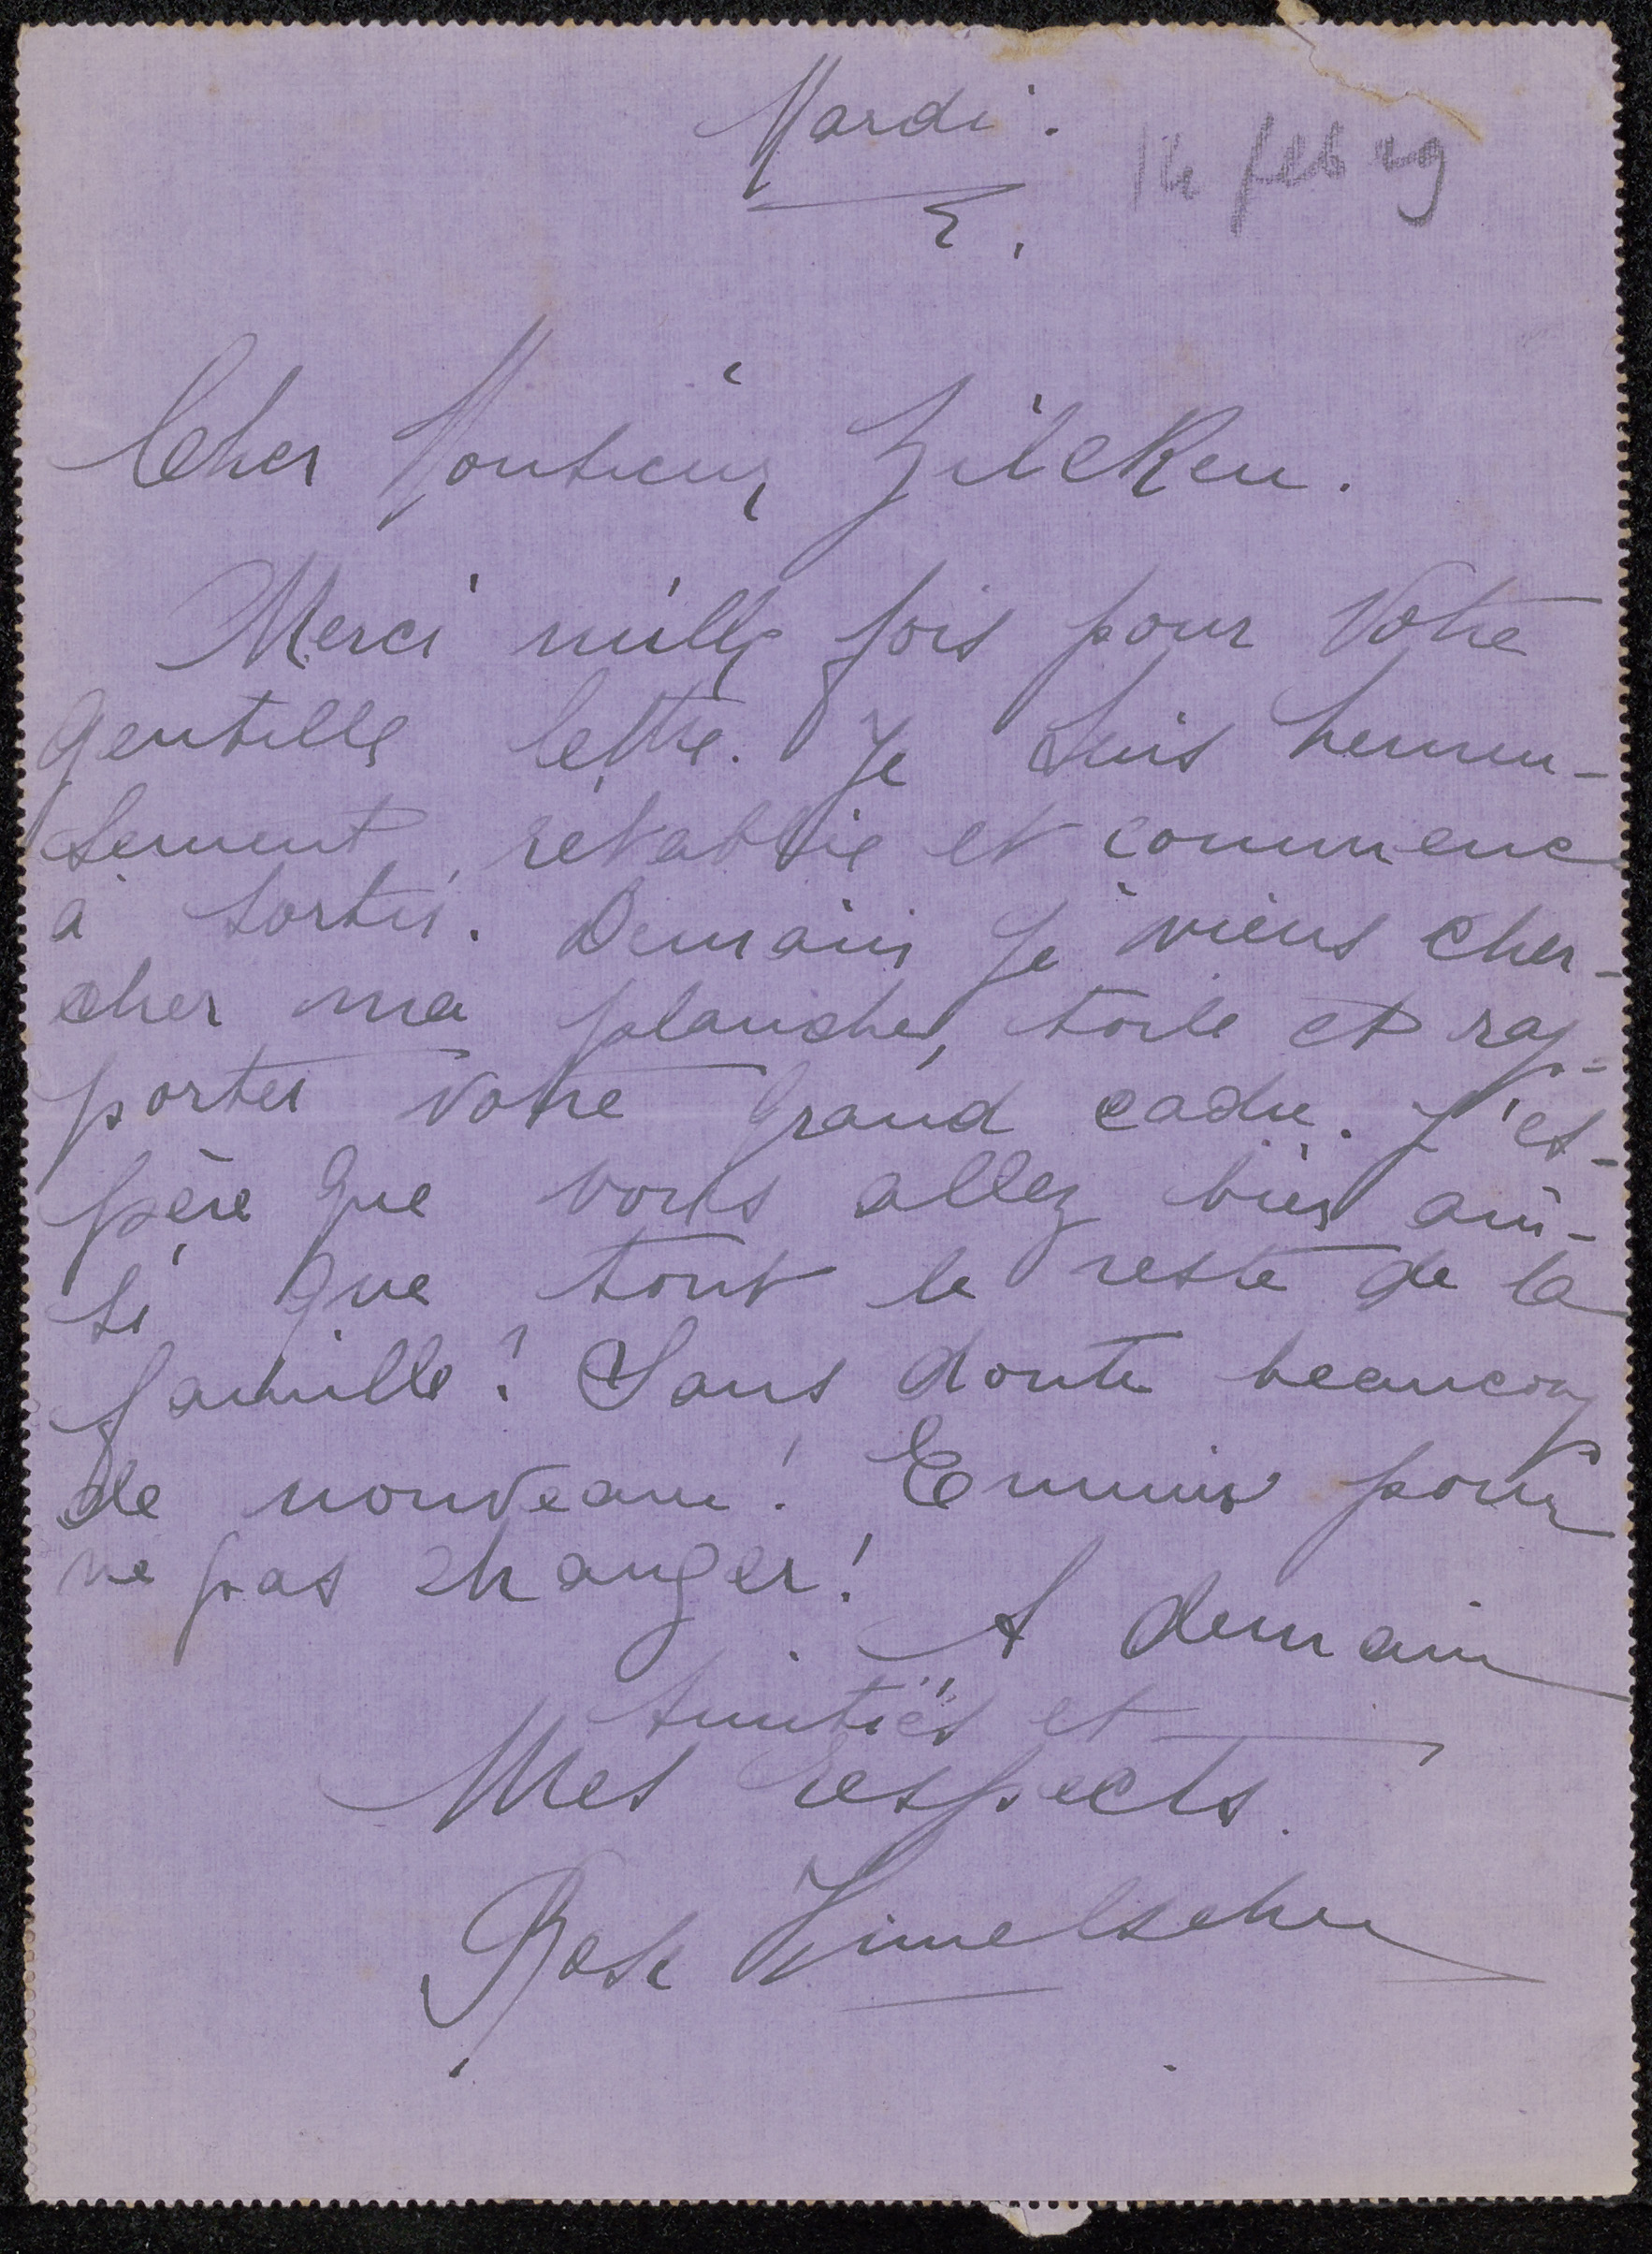 Mardi.
14 feb 29
Cher Monsieur Zilcken.
Merci mille fois pour votre
gentille lettre. Je suis heureu-
sement, rétablie et commence
à sortir. Demain je viens cher-
cher ma planche, toile et rap-
porter votre grand cadre. J'es-
père que vous allez bien ain-
si que tout le reste de la
famille? Sans doute beaucoup
de nouveau! Ennuis pour
ne pas changer!
A demain
Amitiés et
Mes respects.
Rose